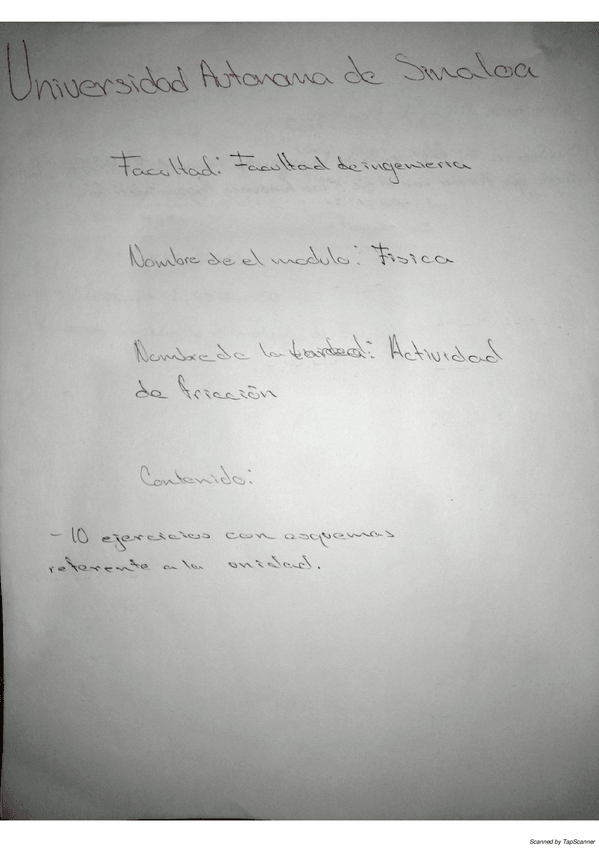 Universidad Autonoma de Sinaloa
Facultad: Facultad de ingenieria
Nombre de el modulo: Fisica
Nombre de la tarea: Actividad
de fricción
Contenido:
- 10 ejercicios con esquemas
referente a la unidad.
Scanned by TapScanner